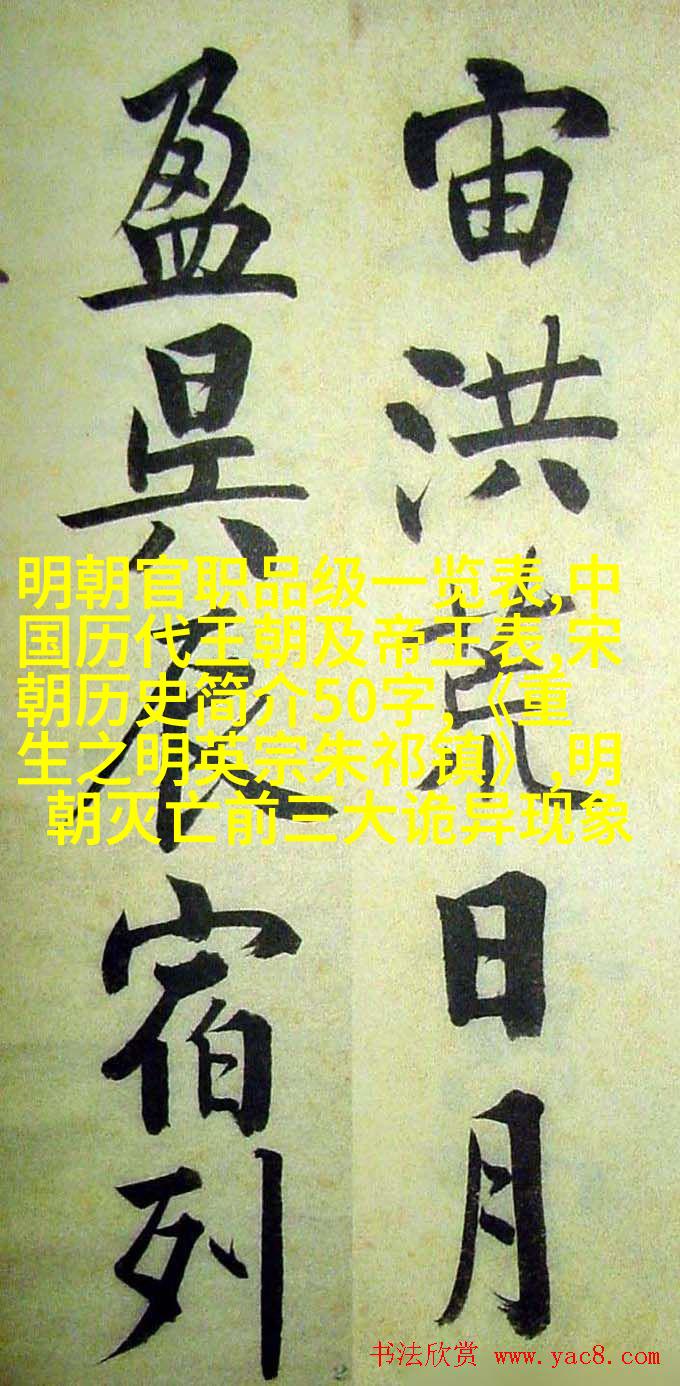 宙洪荒日月
盈昃辰宿列
明朝官职品级一览表,中
国历代王朝及帝王表,宋
朝历史简介50字,《重
生之明英宗朱祁镇》,明
朝灭亡前三大诡异现象
书法欣赏 www.yac8.com